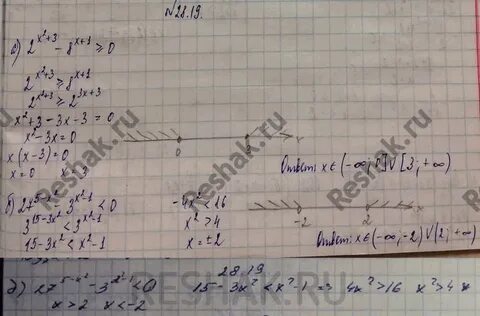 №28.19.
а) 2^{x²+3} - 8^{x+1} ≥ 0
2^{x²+3} ≥ 8^{x+1}
2^{x²+3} ≥ 2^{3x+3}
x²+3-3x-3=0
x²-3x=0
x(x-3)=0
x=0 x=3
0 3 x
Ответ: x∈(-∞; 0]∪[3; +∞)
б) 27^{5-x²} - 3^{x²-1} < 0
3^{15-3x²} < 3^{x²-1}
15-3x² < x²-1
-4x² < 16
x² > 4
x = ±2
-2 2 x
Ответ: x∈(-∞; -2)∪(2; +∞)
28.19
27^{5-x²} - 3^{x²-1} < 0 15-3x² < x²-1 => 4x² > 16 x² > 4
x > 2 x < -2
Reshak.ru
Reshak.ru
Reshak.ru
Reshak.ru